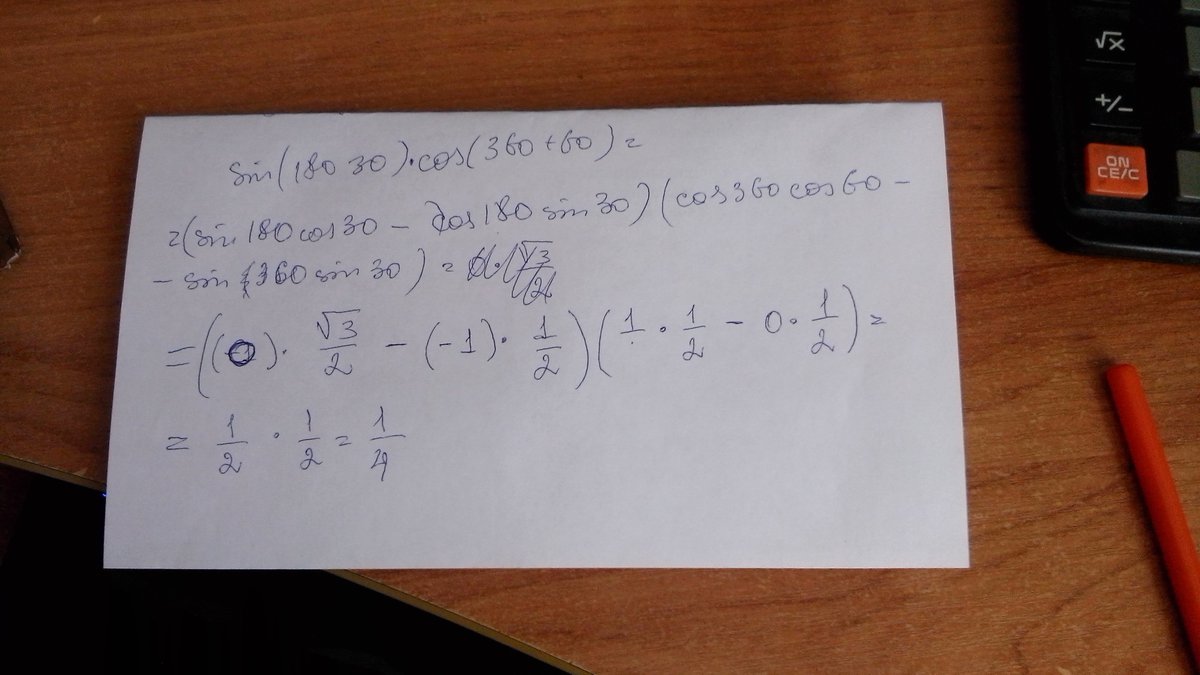 sin(180 30)·cos(360+60)=
=(sin 180 cos 30 - cos 180 sin 30)(cos 360 cos 60 -
- sin 360 sin 30) =
=((0)· √3/2 - (-1)· 1/2)(1 · 1/2 - 0 · 1/2)=
= 1/2 · 1/2 = 1/4
√x
+/-
ON
CE/C